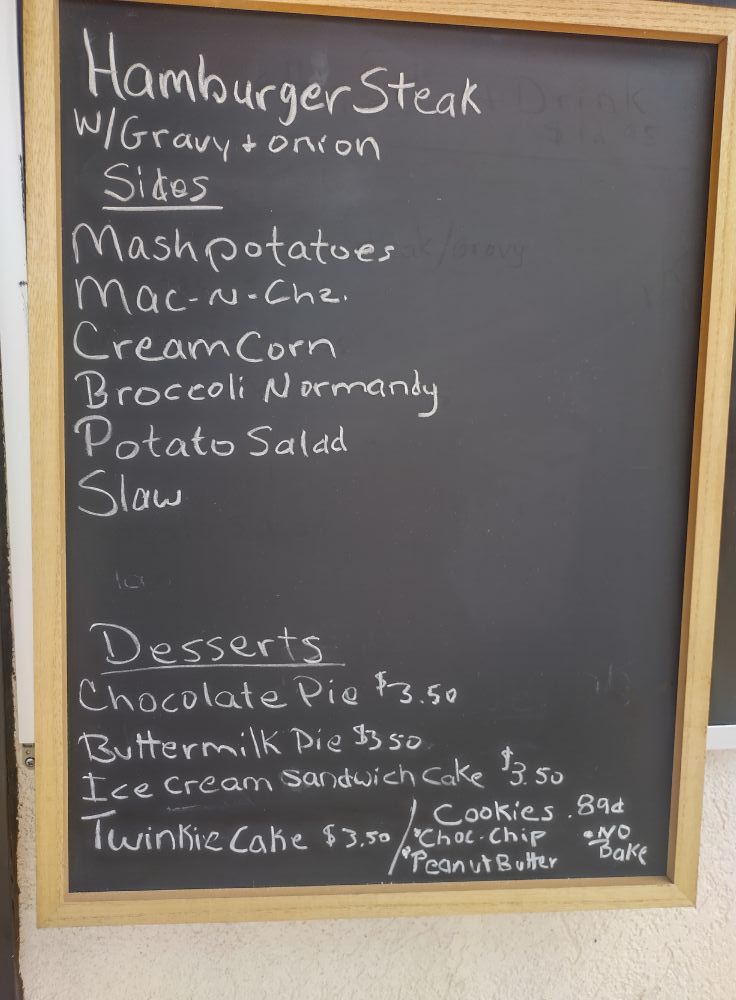 Hamburger Steak
W/Gravy + onion
Sides
Mashpotatoes
Mac-N-Chz.
Cream Corn
Broccoli Normandy
Potato Salad
Slaw
Desserts
Chocolate Pie $3.50
Buttermilk Pie $350
Ice cream sandwich cake $3.50
Twinkie Cake $3.50
Cookies .89¢
*Choc-Chip
*Peanut Butter
*NO
Bake